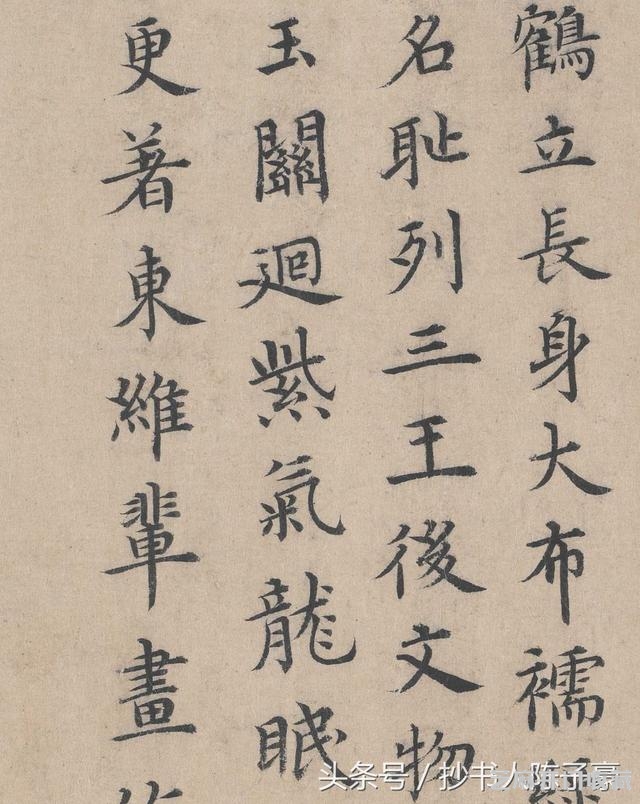 鶴立長身大布襦
名耻列三王後文物
玉關迴紫氣龍眠
更著東維輩畫
头条号／抄书人陈子豪